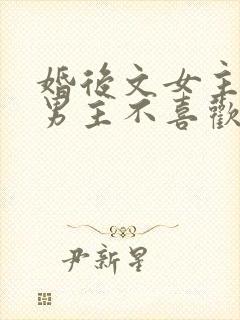 婚後文女主
男主不喜歡
尹新星